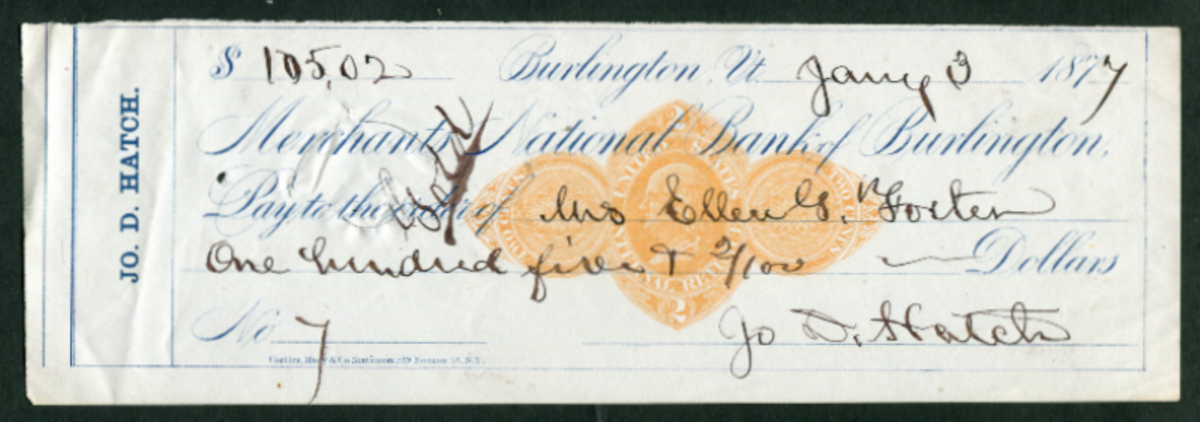 JO. D. HATCH.
$ 105,02 Burlington, Vt. Jany 3 1877
Merchants National Bank of Burlington,
Pay to the order of Mrs Ellen G. Foster
One hundred five & 2/100 Dollars
No 7 Jo D. Hatch
UNITED STATES
INTERNAL REVENUE
2
2